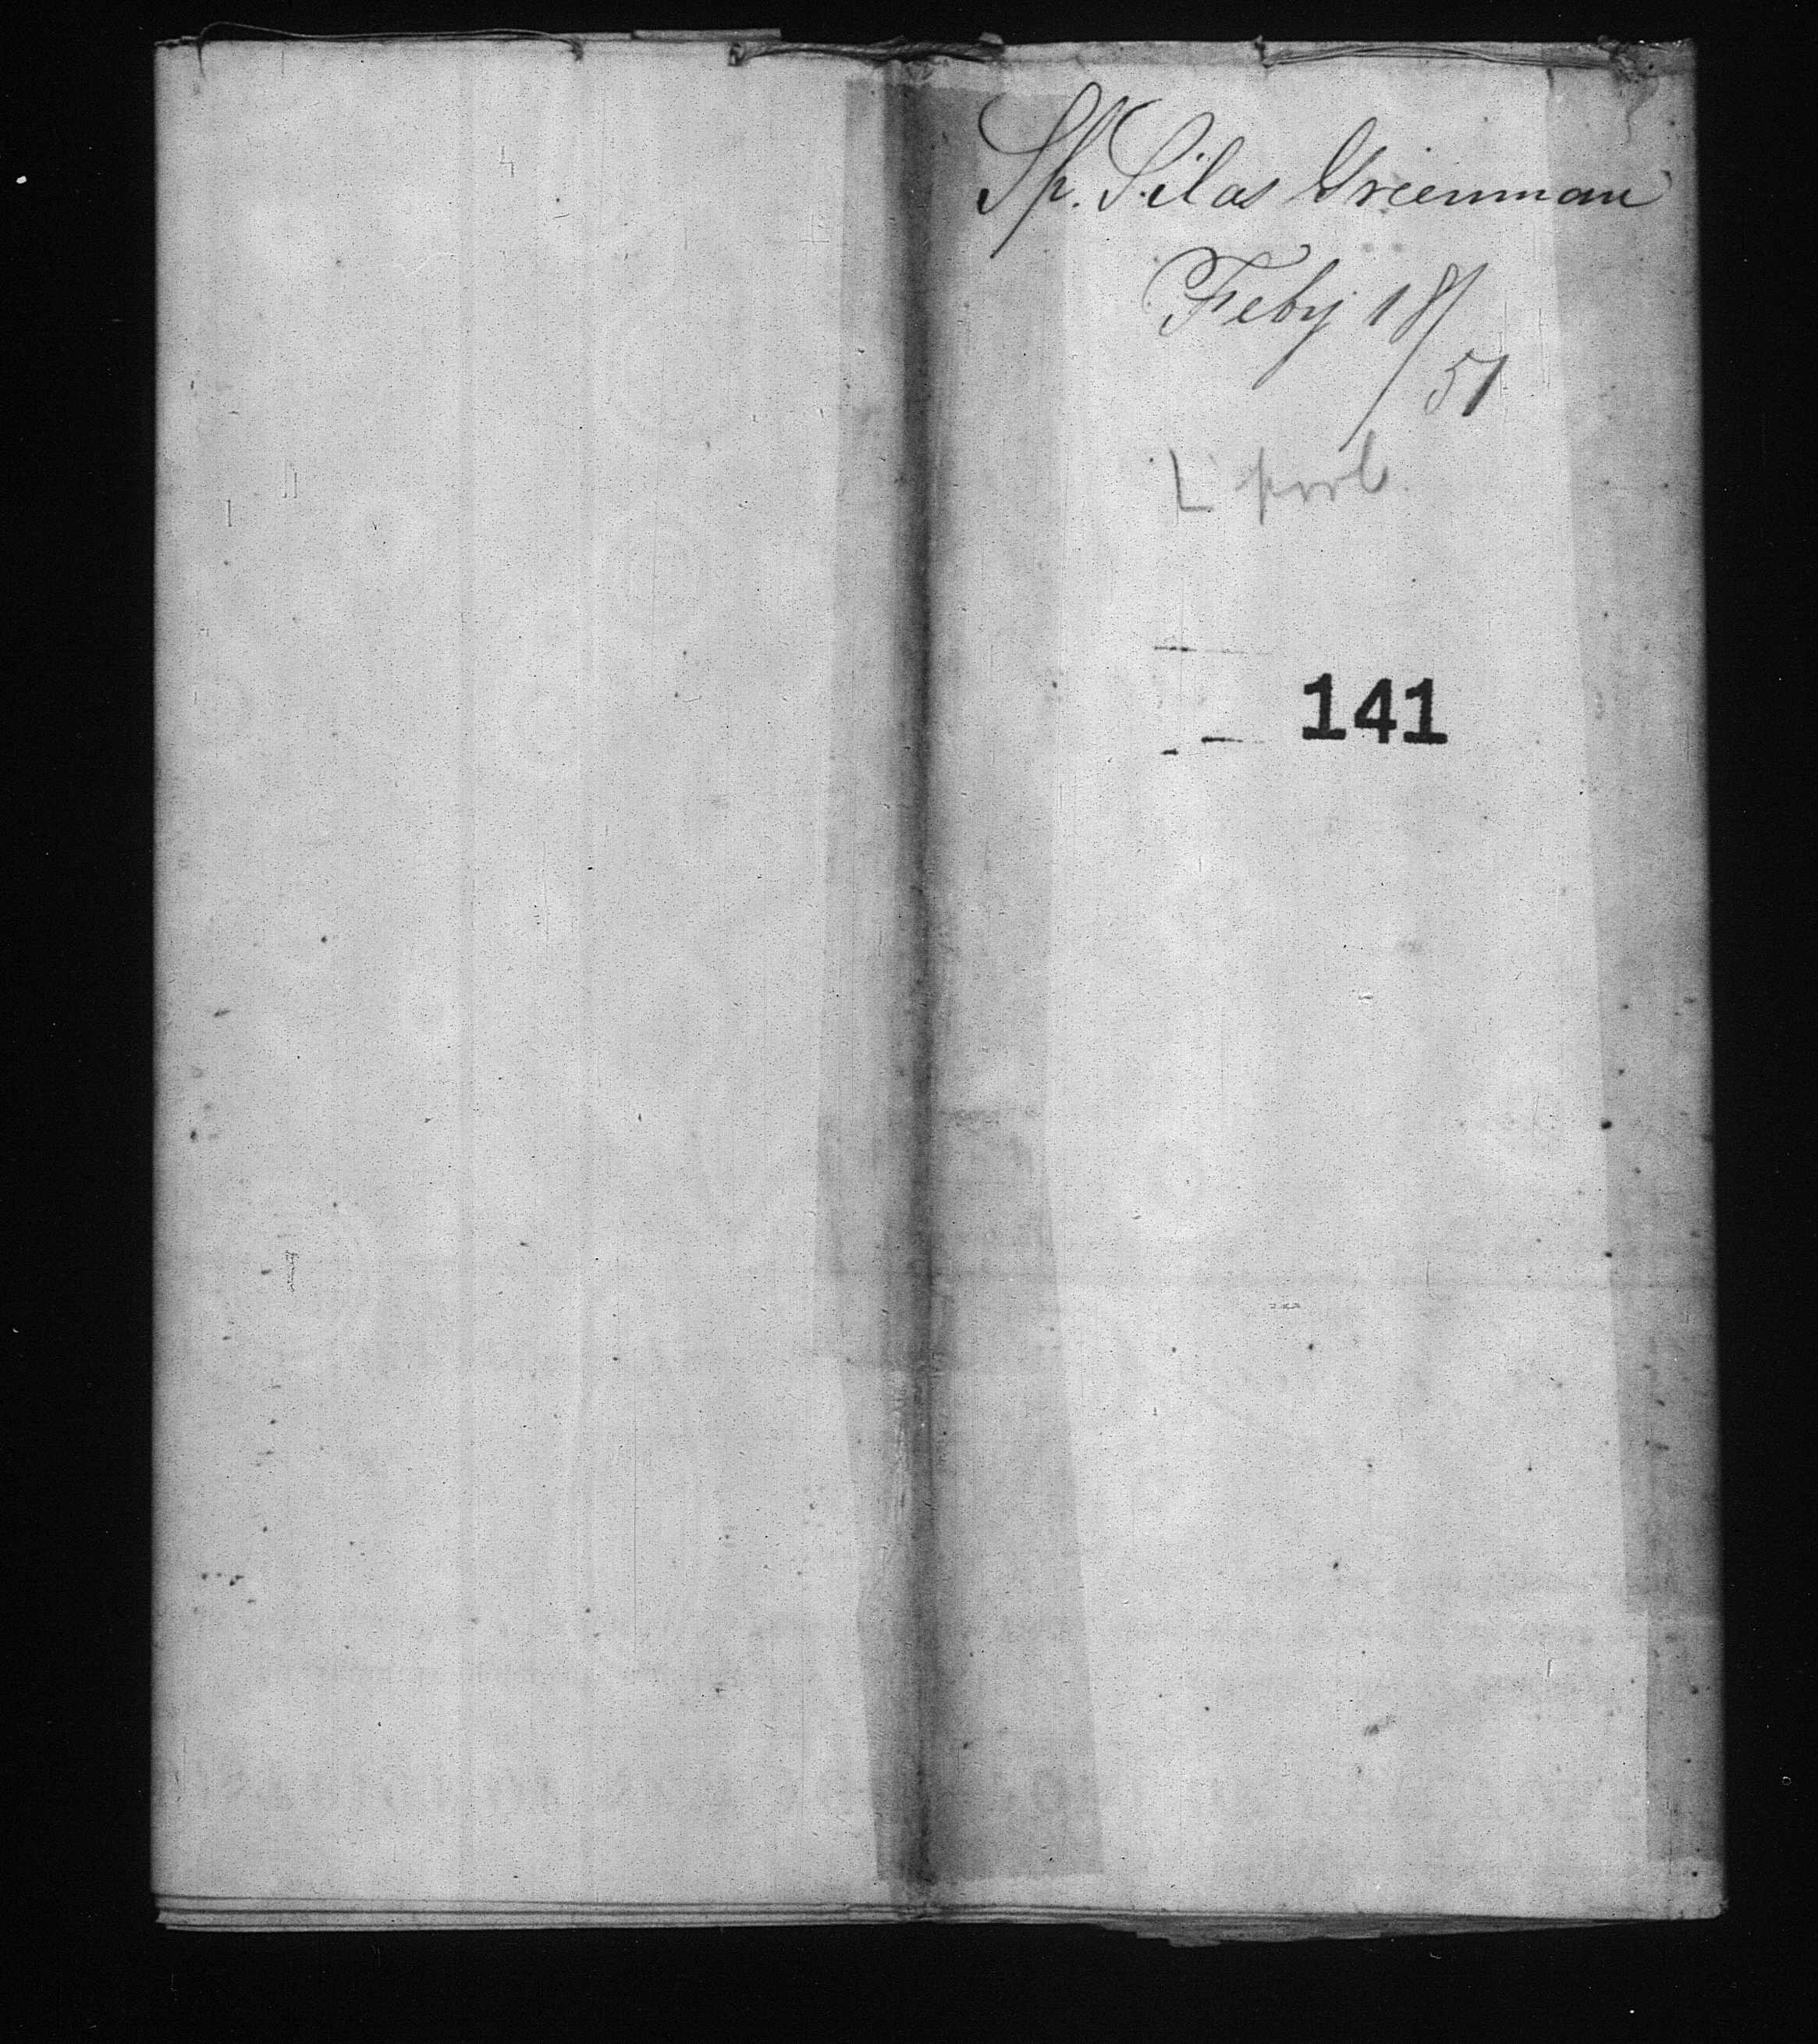 Sh. Silas Greenman
Feby 18/51
L
141